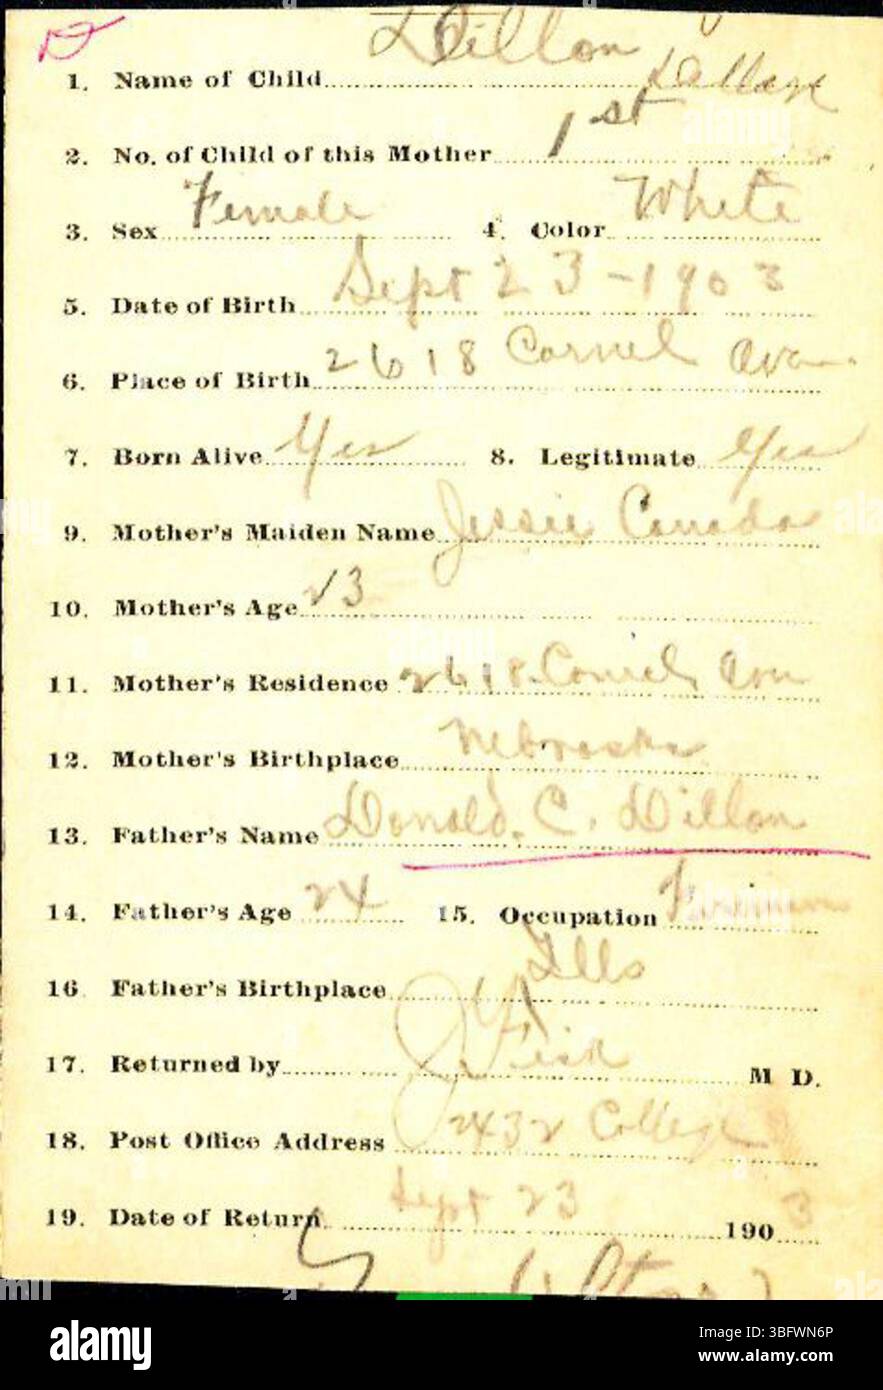 D
Dillon
1. Name of Child
2. No. of Child of this Mother 1st
3. Sex Female 4. Color White
5. Date of Birth Sept 23-1903
6. Place of Birth 2618 Cornel Ave
7. Born Alive Yes 8. Legitimate Yes
9. Mother's Maiden Name Jessie Canada
10. Mother's Age 23
11. Mother's Residence 2618 Cornel Ave
12. Mother's Birthplace Nebraska
13. Father's Name Donald. C. Dillon
14. Father's Age 24 15. Occupation
16 Father's Birthplace Ills
17. Returned by Fisk M D.
18. Post Office Address 2432 College
19. Date of Return Sept 23 1903
alamy
Image ID: 3BFWN6P
www.alamy.com